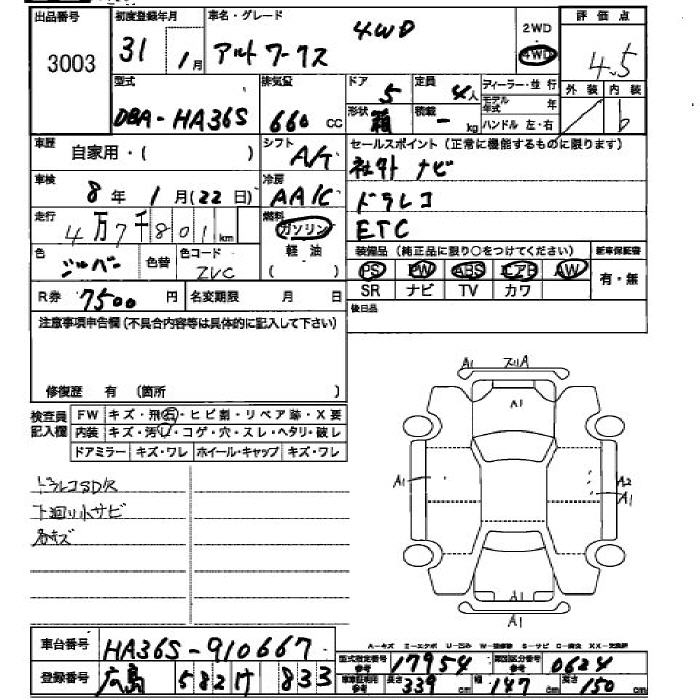 出品番号 3003
初度登録年月 31 1月
車名・グレード アルトワークス 4WD
2WD
4WD
評価点 4.5
外装 内装 b
型式 DBA-HA36S
排気量 660 CC
ドア 5
形状 箱
定員 4人
積載 - kg
ディーラー・並行
モデル年式 年
ハンドル 左・右
車歴 自家用・( )
シフト
車検 8年 1月(22日)
冷房 AAC
走行 4万7千801km
燃料 ガソリン
軽油
( )
色 シルバー 色替 色コード ZVC
R券 7500円 名変期限 月 日
セールスポイント(正常に機能するものに限ります)
社外ナビ
ドラレコ
ETC
装備品(純正品に限り○をつけてください) 新車保証書
PS PW ABS エアB AW 有・無
SR ナビ TV カワ
後日品
注意事項申告欄(不具合内容等は具体的に記入して下さい)
修復歴 有 (箇所 )
検査員記入欄
FW キズ・飛石・ヒビ割・リペア跡・X要
内装 キズ・汚レ・コゲ・穴・スレ・ヘタリ・破レ
ドアミラー キズ・ワレ ホイール・キャップ キズ・ワレ
ドラレコSD欠
下廻り小サビ
各キズ
A1 スリA
A1
A1 A2
A1
A1
A1
A-キズ E-エクボ U-凹み W-補修跡 S-サビ C-腐食 XX-交換済
車台番号 HA36S-910667
登録番号 広島 582 け 833
型式指定番号 参考 17954 類別区分番号 参考 0624
車車証明用 参考 長さ 339cm 幅 147cm 高さ 150cm